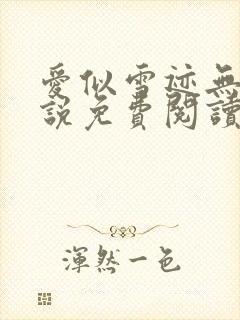 愛似雪迹無
說免費閱讀
渾然一色